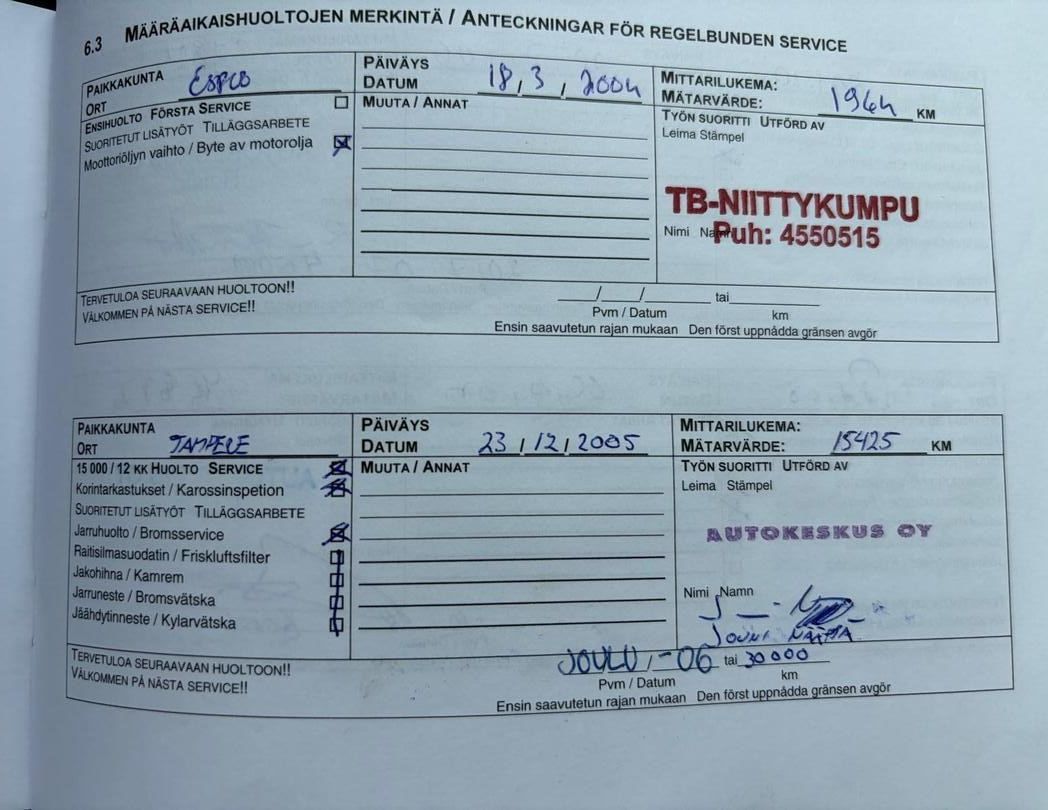 6.3 MÄÄRÄAIKAISHUOLTOJEN MERKINTÄ / ANTECKNINGAR FÖR REGELBUNDEN SERVICE
PAIKKAKUNTA
ORT Espoo
PÄIVÄYS
DATUM 18, 3, 2004
MITTARILUKEMA:
MÄTARVÄRDE: 1944 KM
ENSIHUOLTO FÖRSTA SERVICE
SUORITETUT LISÄTYÖT TILLÄGGSARBETE
Moottoriöljyn vaihto / Byte av motorolja
MUUTA / ANNAT
TYÖN SUORITTI UTFÖRD AV
Leima Stämpel
TB-NIITTYKUMPU
Nimi Namn Puh: 4550515
TERVETULOA SEURAAVAAN HUOLTOON!!
VÄLKOMMEN PÅ NÄSTA SERVICE!!
/ / tai
Pvm / Datum km
Ensin saavutetun rajan mukaan Den först uppnådda gränsen avgör
PAIKKAKUNTA
ORT TAMPERE
PÄIVÄYS
DATUM 23 / 12 / 2005
MITTARILUKEMA:
MÄTARVÄRDE: 15425 KM
15 000 / 12 KK HUOLTO SERVICE
Korintarkastukset / Karossinspetion
SUORITETUT LISÄTYÖT TILLÄGGSARBETE
Jarruhuolto / Bromsservice
Raitisilmasuodatin / Friskluftsfilter
Jakohihna / Kamrem
Jarruneste / Bromsvätska
Jäähdytinneste / Kylarvätska
MUUTA / ANNAT
TYÖN SUORITTI UTFÖRD AV
Leima Stämpel
AUTOKESKUS OY
Nimi Namn
JOUNI
TERVETULOA SEURAAVAAN HUOLTOON!!
VÄLKOMMEN PÅ NÄSTA SERVICE!!
JOULU / -06 tai 30000
Pvm / Datum km
Ensin saavutetun rajan mukaan Den först uppnådda gränsen avgör